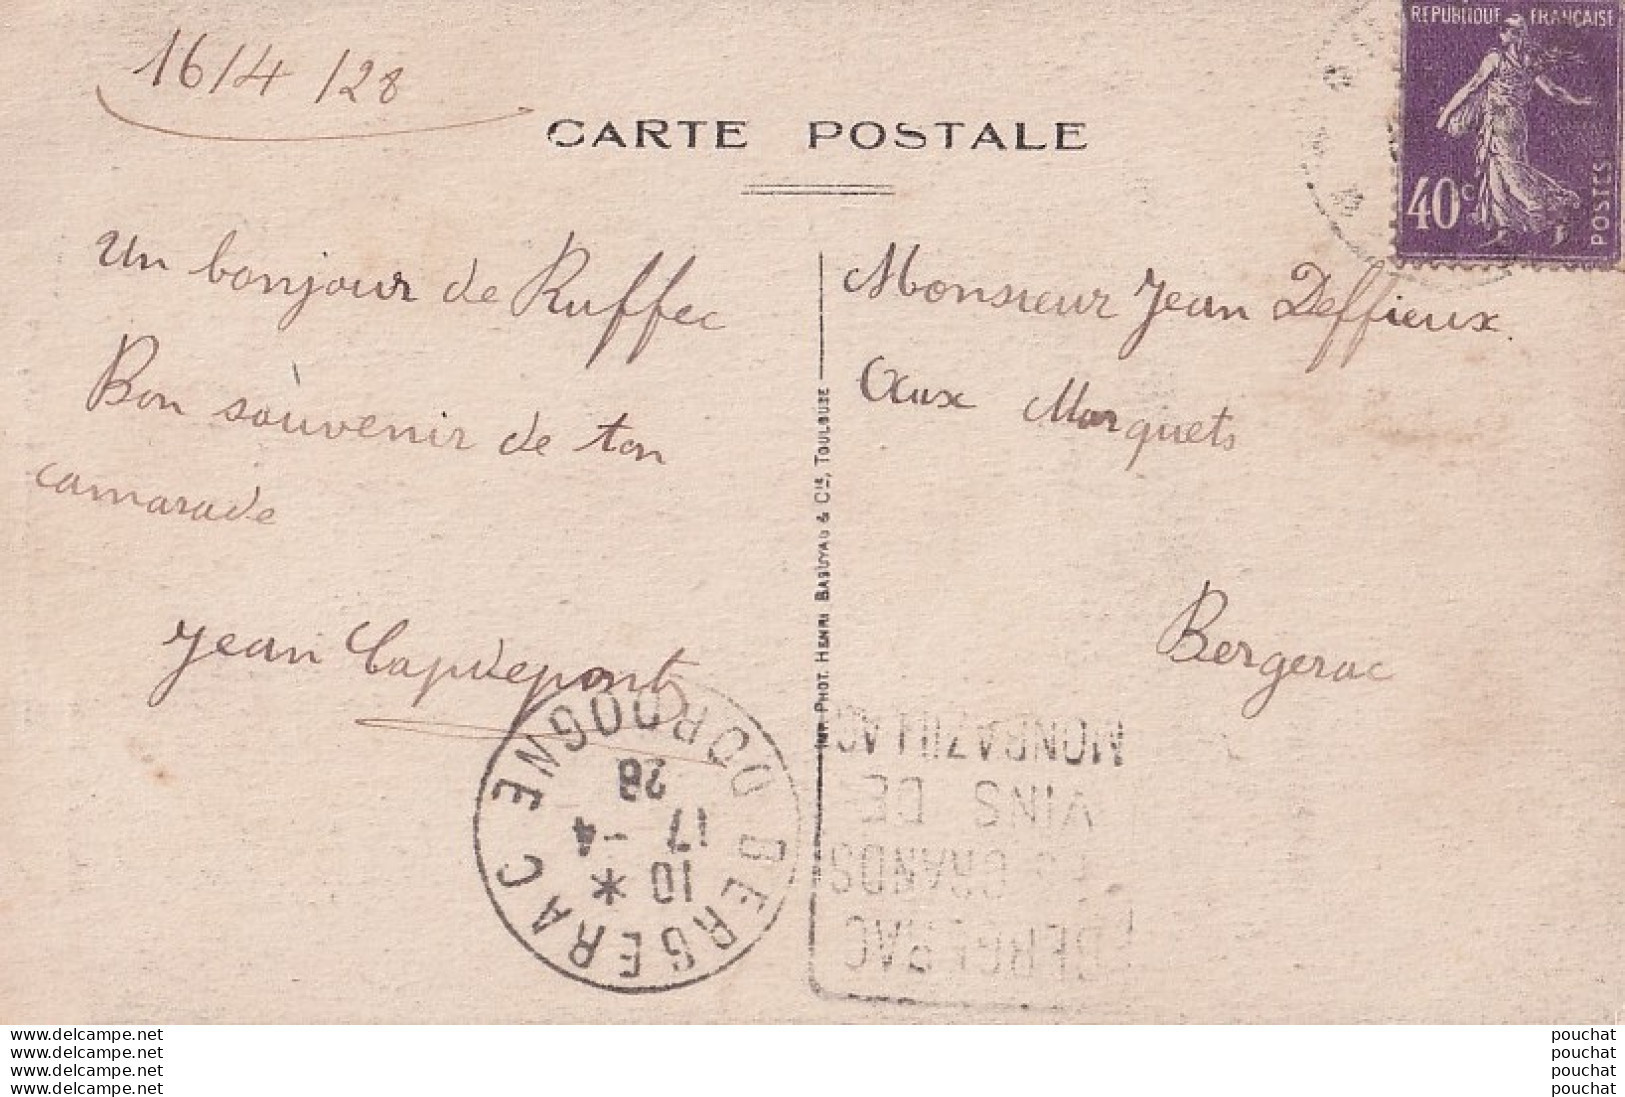 16/4/28
CARTE POSTALE
REPUBLIQUE FRANÇAISE
40c
POSTES
Un bonjour de Ruffec
Bon souvenir de ton
camarade
Jean Capdepont
Monsieur Jean Deffieux.
Aux Marquets
Bergerac
IMP. PHOT. HENRI BASUYAU & Cie, TOULOUSE
BERGERAC DORDOGNE
10 *
17 -4
28
BERGERAC
GRANDS
VINS DE
MONBAZILLAC
www.delcampe.net
www.delcampe.net
www.delcampe.net
www.delcampe.net
pouchat
pouchat
pouchat
pouchat